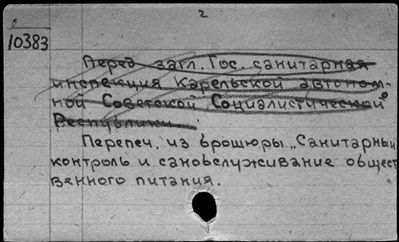 2
б
10383
Перед загл. Гос. санитарная
инспекция Карельской автоном-
ной Советской Социалистической
Республики
Перепеч. из брошюры „Санитарный
контроль и санобслуживание общест
венного питания.